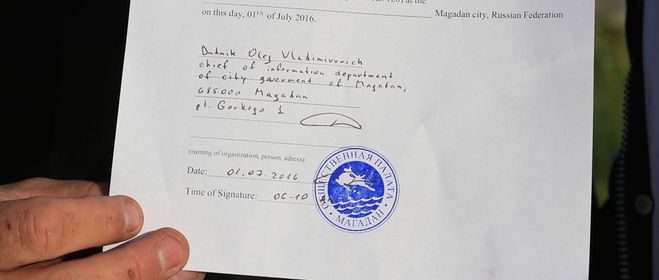 on this day, 01th of July 2016. Magadan city, Russian Federation
Dudnik Oleg Vladimirovich
chief of information department
of city goverment of Magadan,
685000 Magadan
pl. Gorkogo 1
(naming of organization, person, adress)
Date: 01.07.2016
Time of Signature: 06-10
ОБЩЕСТВЕННАЯ ПАЛАТА
МАГАДАН